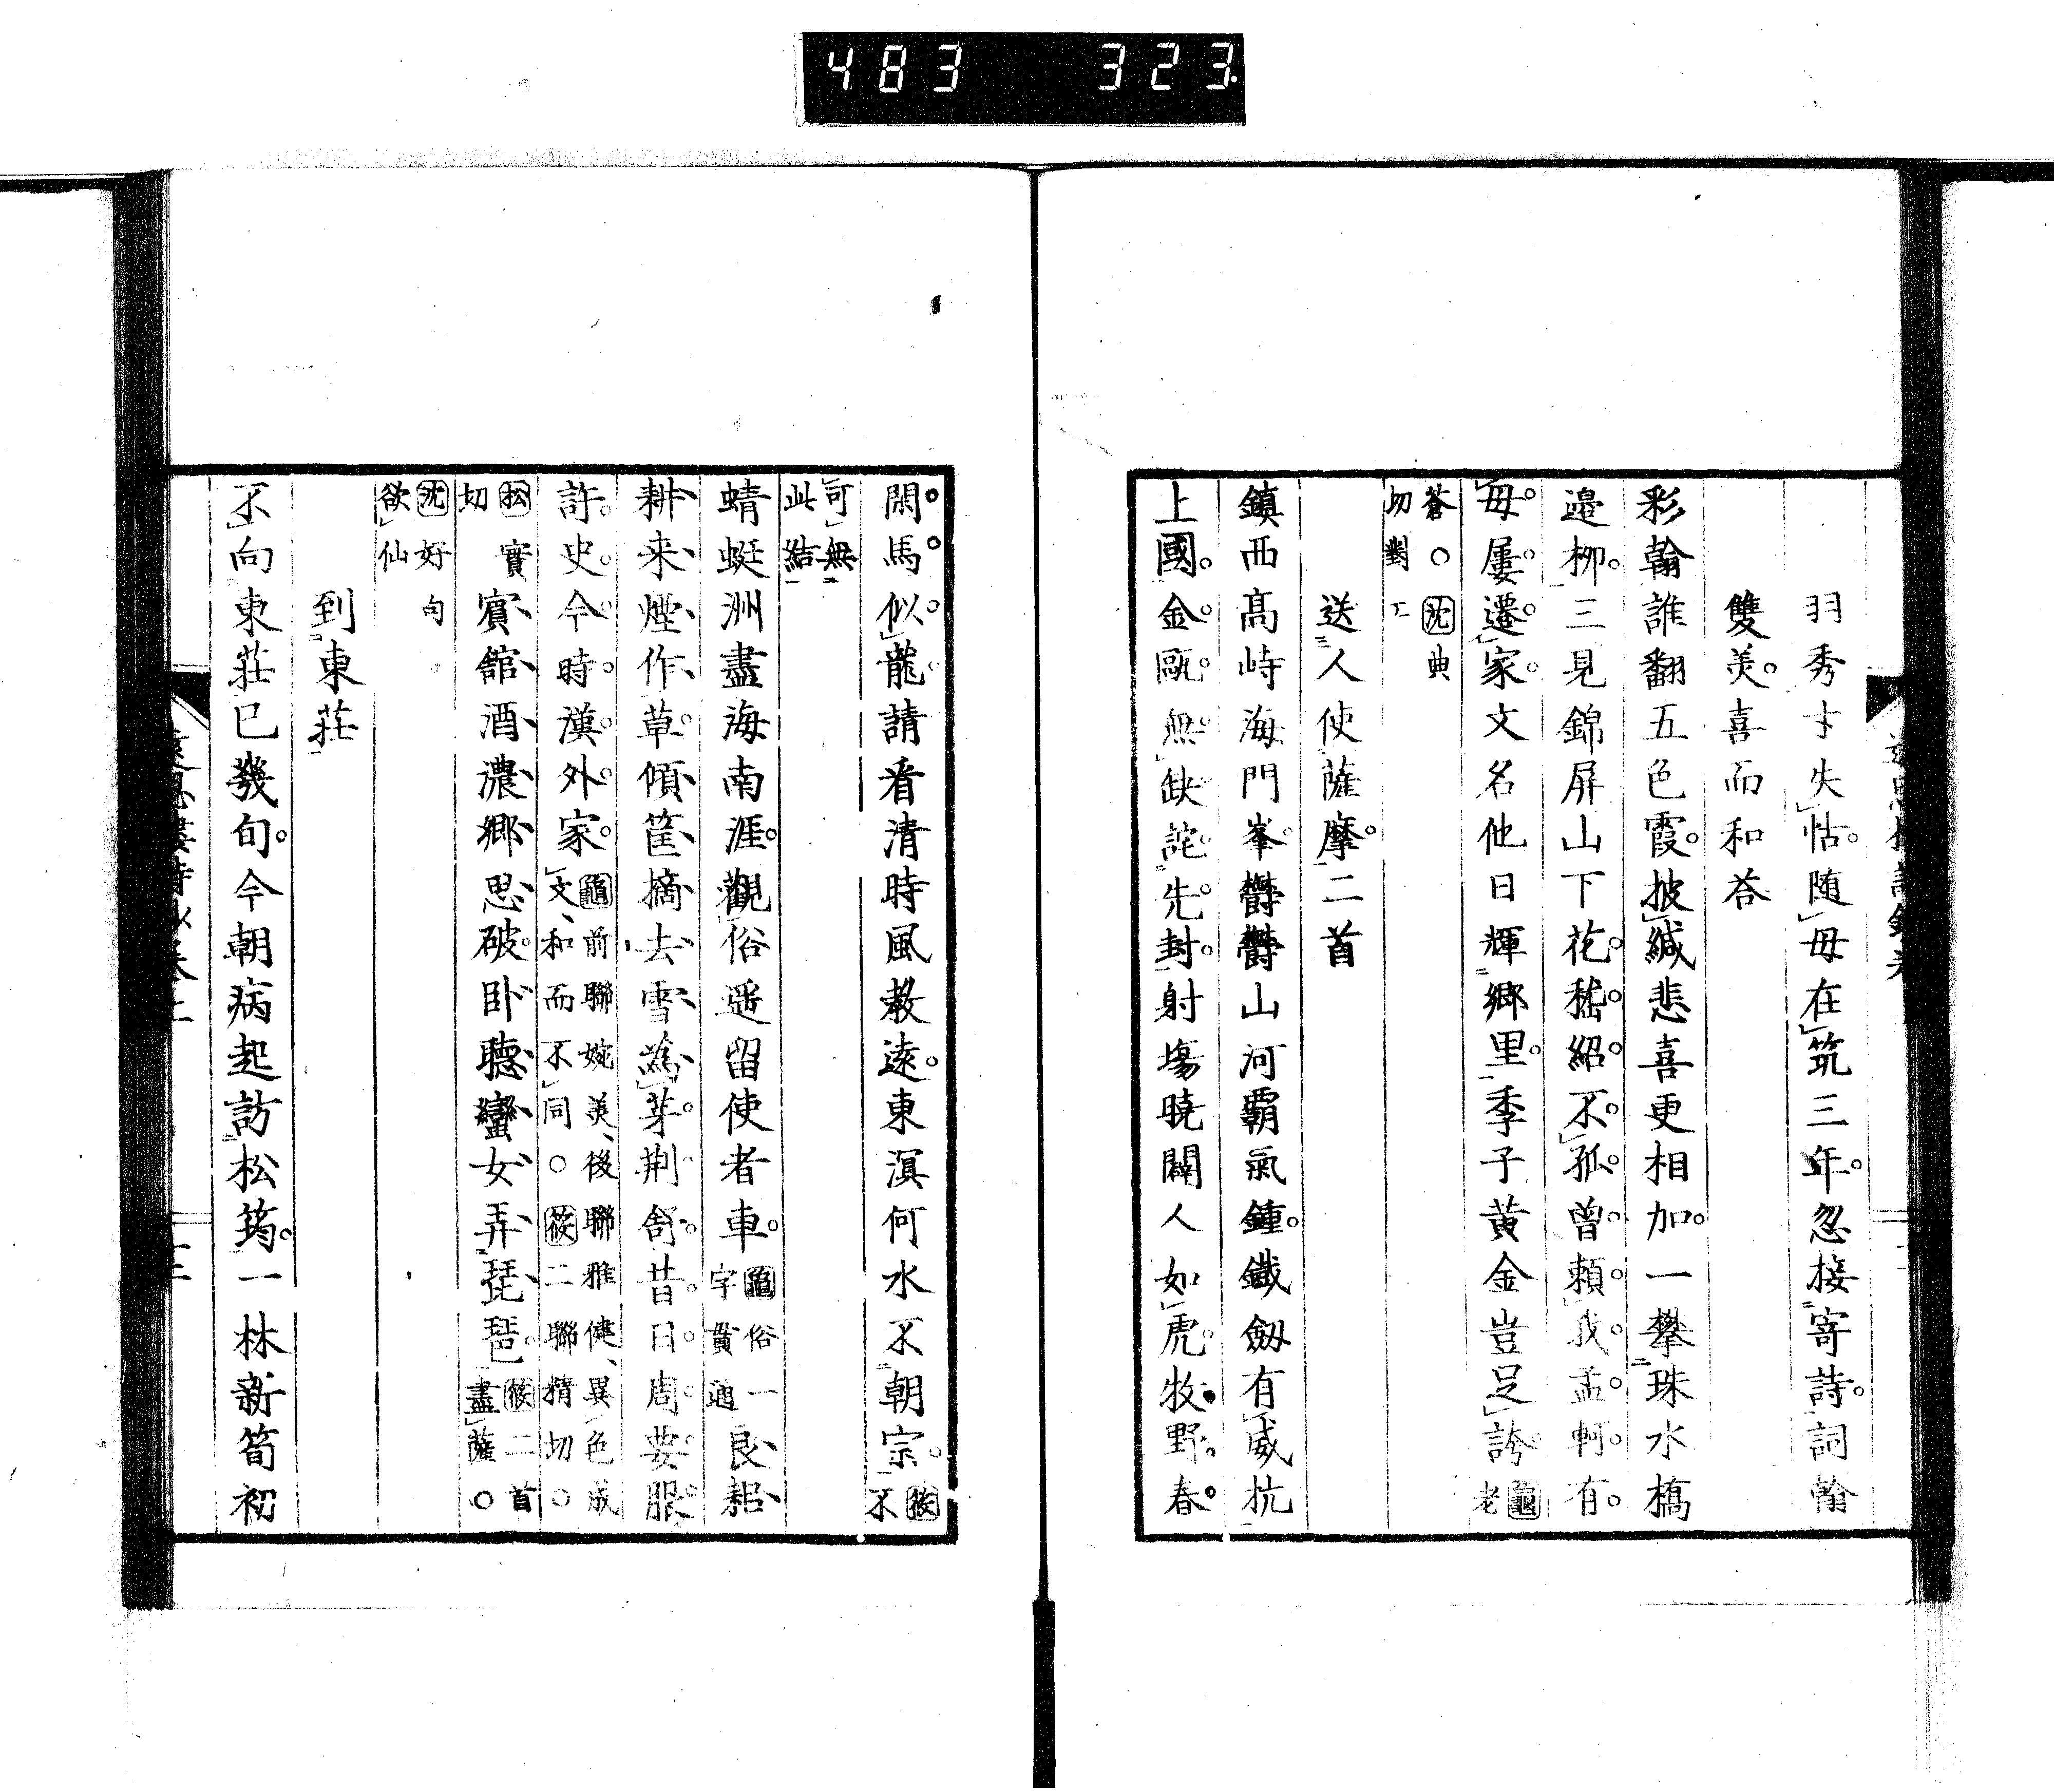 483 323
羽秀才失怙。随母在筑三年。忽接寄詩。詞翰
雙美。喜而和答
彩翰誰翻五色霞。披緘悲喜更相加。一攀珠水橋
邉柳。三見錦屏山下花。嵇紹不孤曾頼我。孟軻有
母屡遷家。文名他日輝郷里。季子黄金豈足誇 龜老
蒼○沈典
切對工
送人使薩摩。二首
鎮西髙峙海門峯。欝欝山河覇氣鍾。鐵劔有威抗
上國。金甌無缺詫先封。射塲曉闢人如虎。牧野春
閑馬似龍。請看清時風敎遠。東溟何水不朝宗。筱不
可無
此結
蜻蜓洲盡海南涯。觀俗遥留使者車。龜俗一字貫通 艮耜
耕来煙作草。傾筐摘去雪為芽。荆舒昔日周要服。
許史今時漢外家。龜前聯婉美、後聯雅健、異色成文、和而不同○筱二聯精切○
松實切 賓舘酒濃郷思破。卧聽蠻女弄琵琶。筱二首盡薩○
沈好句
欲仙
到東莊
不向東莊已幾旬。今朝病起訪松筠。一林新筍初